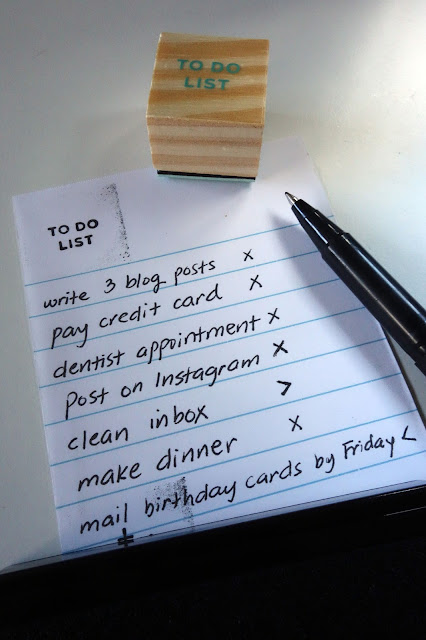 TO DO
LIST
TO DO
LIST
write 3 blog posts x
pay credit card x
dentist appointment x
post on Instagram x
clean inbox >
make dinner x
mail birthday cards by Friday <